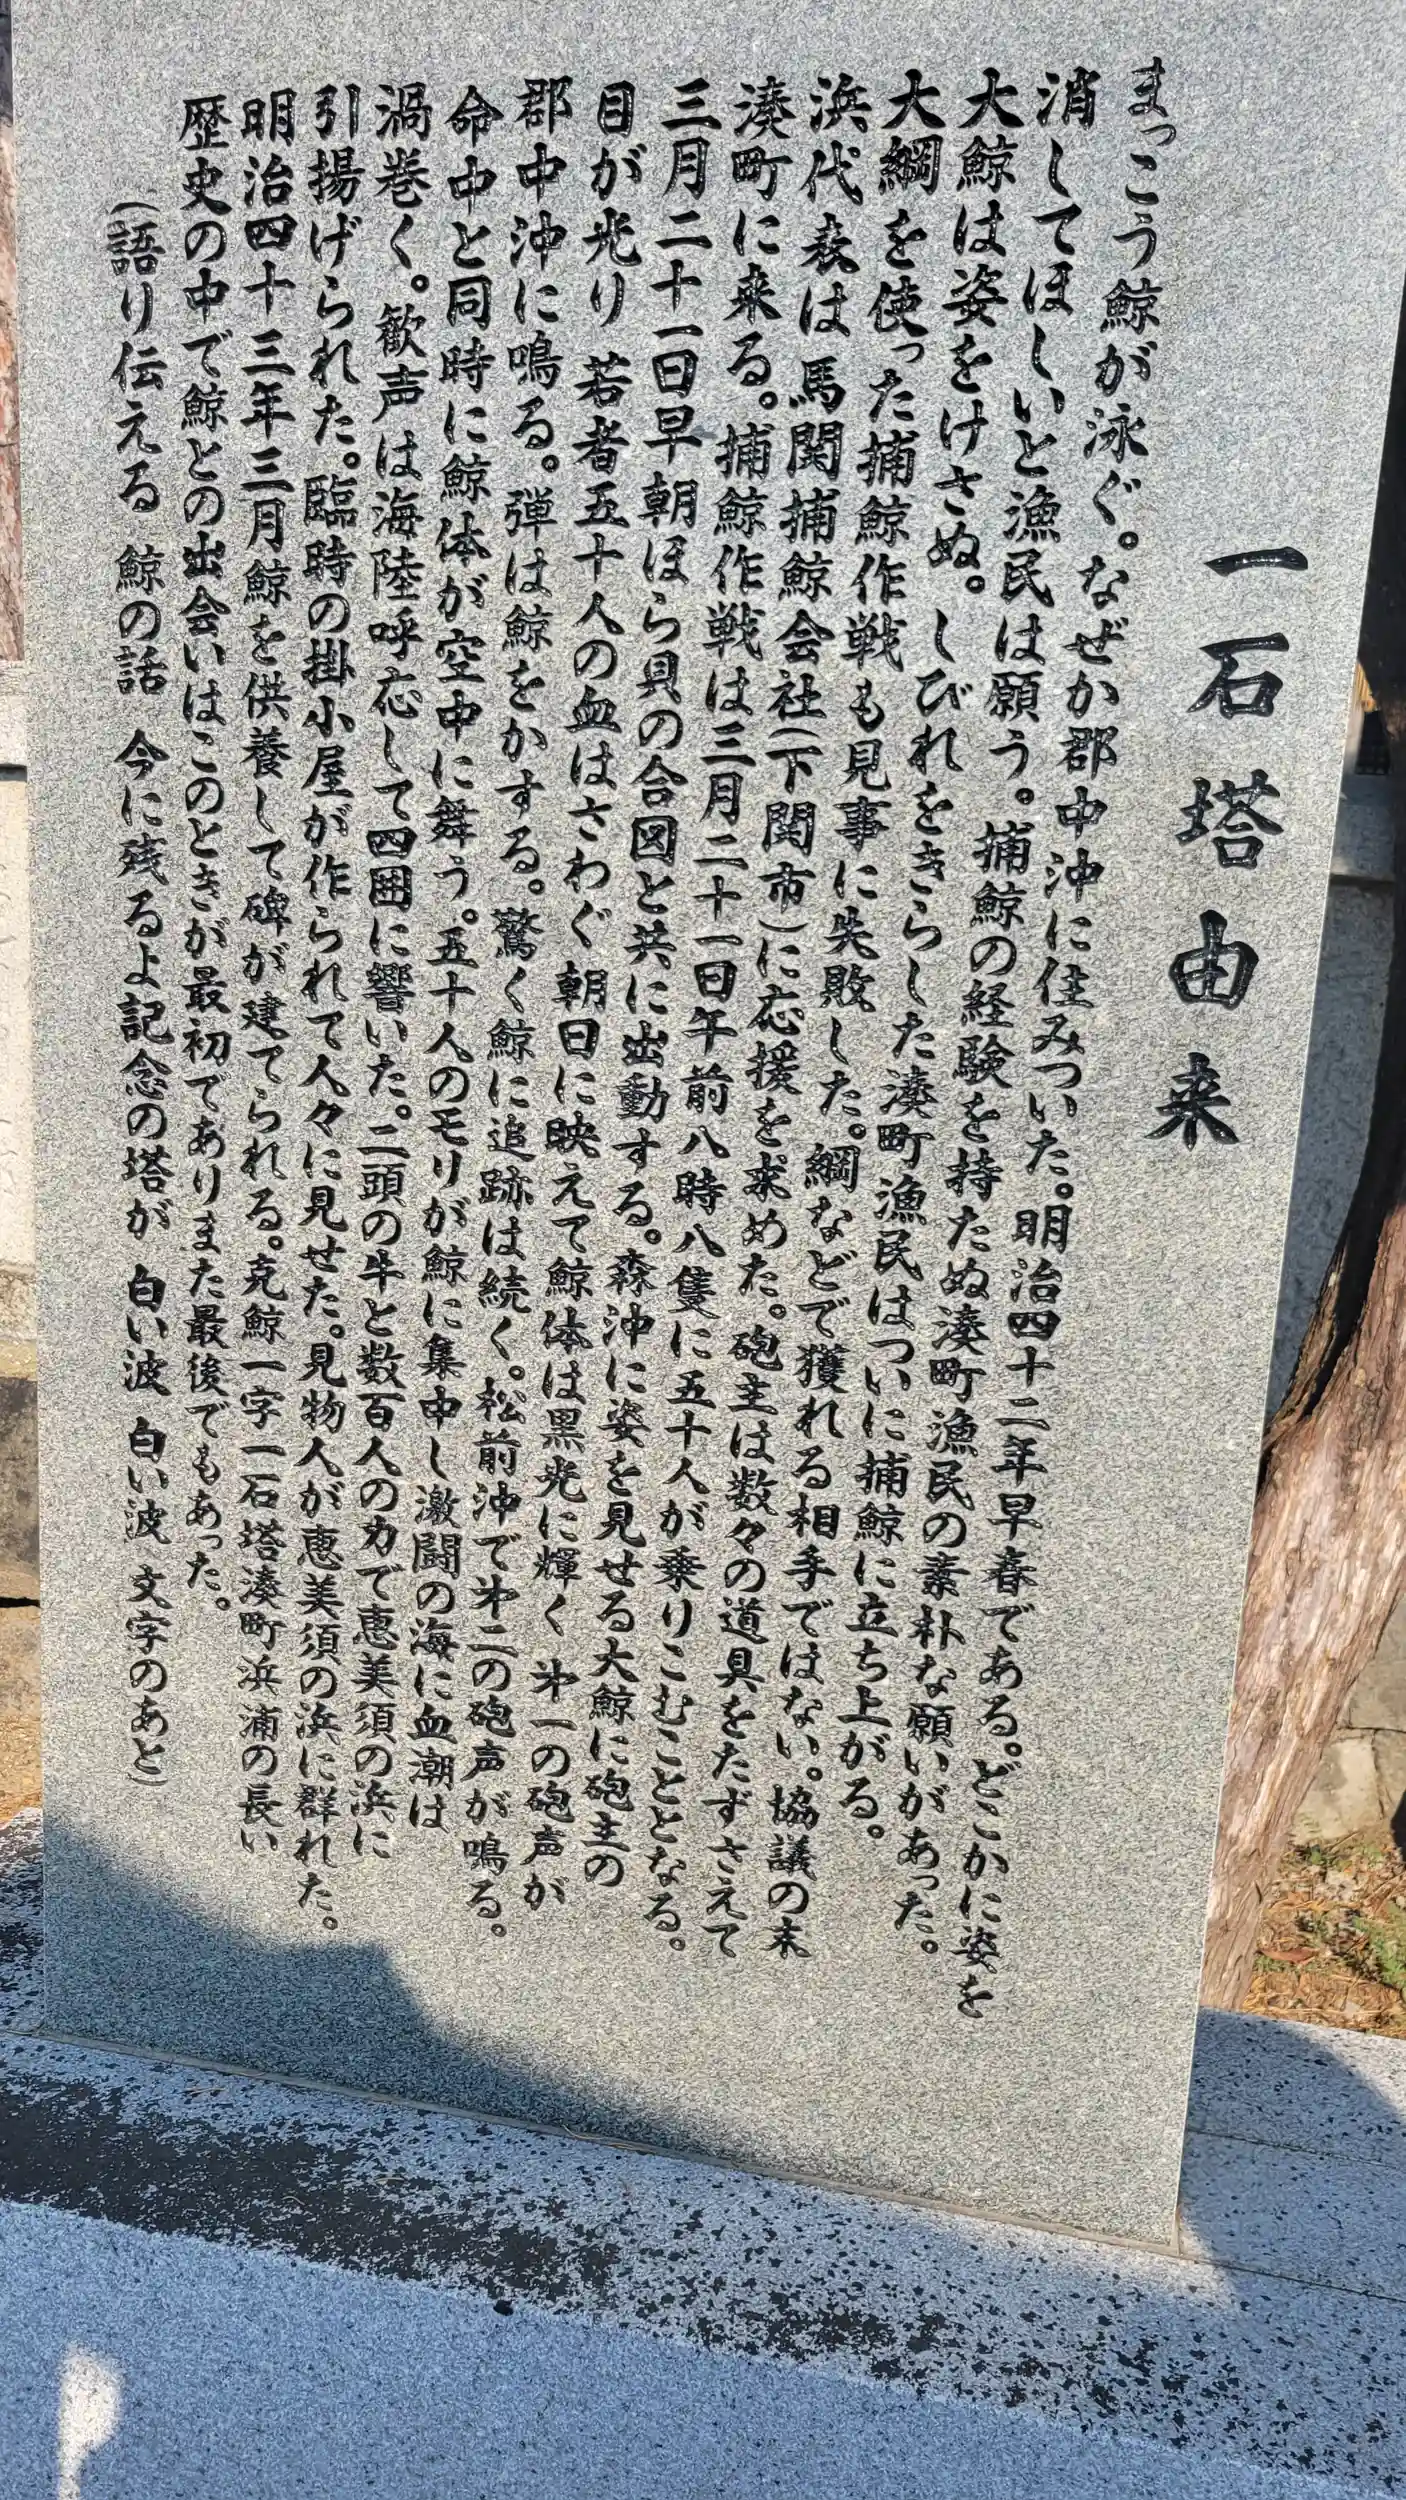 一石塔由来
まっこう鯨が泳ぐ。なぜか郡中沖に住みついた。明治四十二年早春である。どこかに姿を
消してほしいと漁民は願う。捕鯨の経験を持たぬ湊町漁民の素朴な願いがあった。
大鯨は姿をけさぬ。しびれをきらした湊町漁民はついに捕鯨に立ち上がる。
大綱を使った捕鯨作戦も見事に失敗した。綱などで獲れる相手ではない。協議の末
浜代表は馬関捕鯨会社(下関市)に応援を求めた。砲主は数々の道具をたずさえて
湊町に来る。捕鯨作戦は三月二十一日午前八時八隻に五十人が乗りこむこととなる。
三月二十一日早朝ほら貝の合図と共に出動する。森沖に姿を見せる大鯨に砲主の
目が光り 若者五十人の血はさわぐ 朝日に映えて鯨体は黒光に輝く 㐧一の砲声が
郡中沖に鳴る。弾は鯨をかする。驚く鯨に追跡は続く。松前沖で㐧二の砲声が鳴る。
命中と同時に鯨体が空中に舞う。五十人のモリが鯨に集中し激闘の海に血潮は
渦巻く。歓声は海陸呼応して四囲に響いた。二頭の牛と数百人の力で恵美須の浜に
引揚げられた。臨時の掛小屋が作られて人々に見せた。見物人が恵美須の浜に群れた。
明治四十三年三月鯨を供養して碑が建てられる。克鯨一字一石塔湊町浜浦の長い
歴史の中で鯨との出会いはこのときが最初でありまた最後でもあった。
(語り伝える 鯨の話 今に残るよ記念の塔が 白い波 白い波 文字のあと)